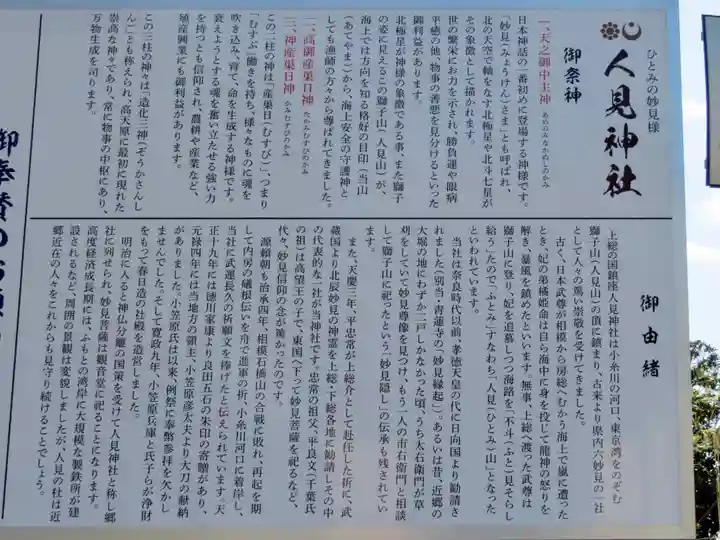 ひとみの妙見様
人見神社
御祭神
一、天之御中主神 あめのみなかぬしのかみ
日本神話の一番初めに登場する神様です。
「妙見(みょうけん)さま」とも呼ばれ、
北の天空で軸をなす北極星や北斗七星が
その象徴として描かれます。
世の繁栄にお力を示され、勝負運や眼病
平癒の他、物事の善悪を見分けるといった
御利益があります。
北極星が神様の象徴である事、また獅子
の姿に見えるこの獅子山(人見山)が、
海上では方向を知る格好の目印(当山
(あてやま))から、海上安全の守護神と
しても漁師の方々から尊ばれてきました。
二、高御産巣日神 たかみむすびのかみ
三、神産巣日神 かみむすびのかみ
この二柱の神は「産巣日(むすび)」、つまり
「むすぶ」働きを持ち、様々なものに魂を
吹き込み育て、命を生成する神様です。
衰えようとする魂を奮い立たせる強い力
を持つとも信仰され、農耕や産業など、
殖産興業にも御利益があります。
この三柱の神々は「造化三神(ぞうかさんし
ん)」とも称えられ、高天原に最初に現れた
崇高な神々であり、常に物事の中枢にあり、
万物生成を司ります。
御由緒
上総の国鎮座人見神社は小糸川の河口、東京湾をのぞむ
獅子山(人見山)の頂に鎮まり、古来より県内六妙見の一社
として人々の篤い崇敬を受けてきました。
古く、日本武尊が相模から房総へむかう海上で嵐に遭った
とき、妃の弟橘姫命は自ら海中に身を投じて龍神の怒りを
解き、暴風を鎮めたといいます。無事、上総へ渡った武尊は
獅子山に登り、妃を追慕しつつ海路を「不斗(ふと)見そらし
給う」したので「ふとみ」すなわち「人見(ひとみ)山」となった
といわれています。
当社は奈良時代以前、孝徳天皇の代に日向国より勧請さ
れました(別当・青蓮寺の「妙見縁起」)。あるいは昔、近郷の
大堀の地にわずか二戸しかなかった頃、うち太右衛門が草
刈をしていて妙見尊像を見つけ、もう一人の市右衛門と相談
して獅子山に祀ったという「妙見隠し」の伝承も残されてい
ます。
また、天慶三年、平忠常が上総介として赴任した折に、武
蔵国より北辰妙見の神霊を上総・下総各地に勧請しその中
の代表的な一社が当神社です。忠常の祖父、平良文(千葉氏
の祖)は高望王の子で、東国へ下って妙見菩薩を祀るなど、
代々、妙見信仰の念が篤かったのです。
源頼朝も治承四年、相模石橋山の合戦に敗れ、再起を期
して内房の磯根伝いを舟で進軍の折、小糸川河口に着岸し、
当社に武運長久の祈願文を捧げたと伝えられています。天
正十九年には徳川家康より良田五石の朱印の寄贈があり、
元禄四年には当地方の領主、小笠原彦太夫より大刀の献納
がありました。小笠原氏は以来、例祭に奉幣参拝を欠かし
ませんでした。そして寛政九年、小笠原兵庫と氏子らが浄財
をもって春日造の社殿を造営しました。
明治に入ると神仏分離の国策を受けて人見神社と称し郷
社に列せられ、妙見菩薩は観音堂に祀ることになります。
高度経済成長期には、ふもとの湾岸に大規模な製鉄所が建
設されるなど、周囲の景観は変貌しましたが、人見の杜は近
郷近在の人々をこれからも見守り続けることでしょう。
御奉賛のお願い